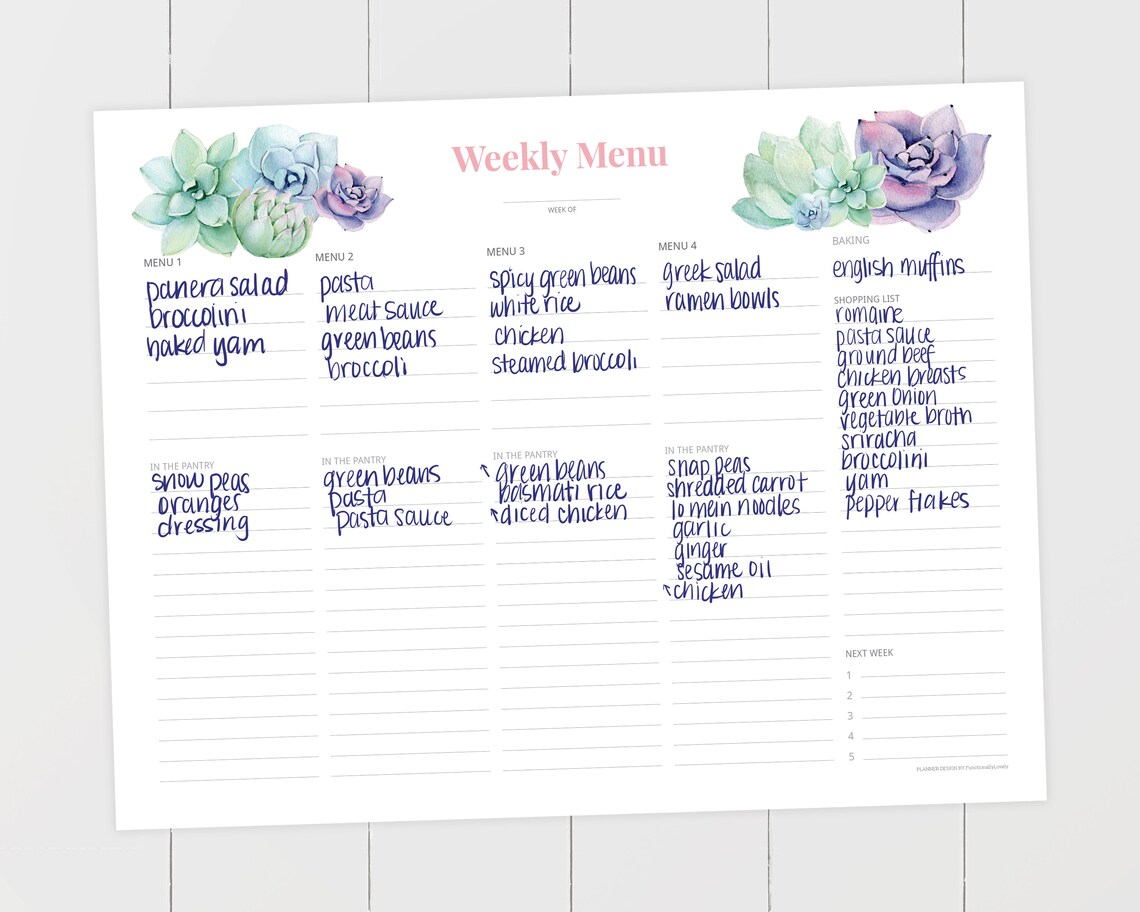 Weekly Menu
WEEK OF
MENU 1
panera salad
broccolini
baked yam
IN THE PANTRY
snow peas
oranges
dressing
MENU 2
pasta
meat sauce
green beans
broccoli
IN THE PANTRY
green beans
pasta
pasta sauce
MENU 3
spicy green beans
white rice
chicken
steamed broccoli
IN THE PANTRY
green beans
basmati rice
diced chicken
MENU 4
greek salad
ramen bowls
IN THE PANTRY
snap peas
shredded carrot
lo mein noodles
garlic
ginger
sesame oil
chicken
BAKING
english muffins
SHOPPING LIST
romaine
pasta sauce
ground beef
chicken breasts
green onion
vegetable broth
sriracha
broccolini
yam
pepper flakes
NEXT WEEK
1
2
3
4
5
PLANNER DESIGN BY FunctionallyLovely